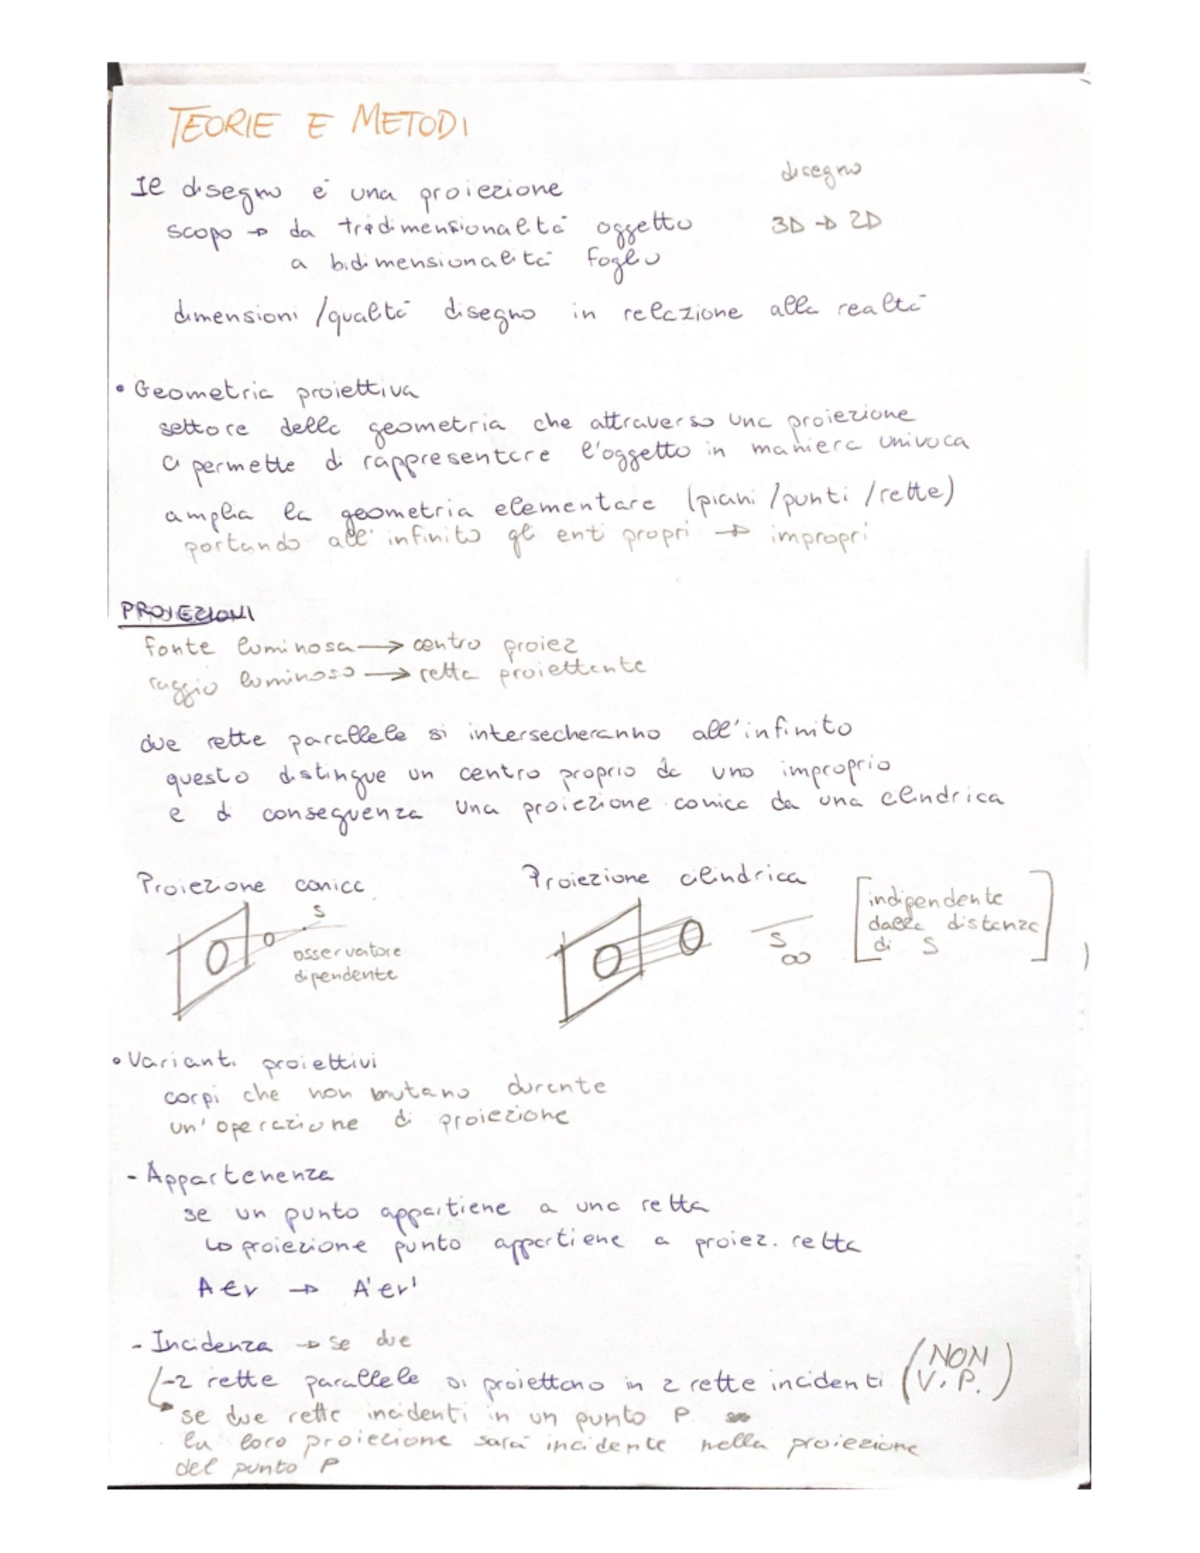 TEORIE E METODI
Il disegno è una proiezione
disegno
scopo → da tridimensionalità oggetto
3D → 2D
a bidimensionalità foglio
dimensioni / qualità disegno in relazione alla realtà
• Geometria proiettiva
settore della geometria che attraverso una proiezione
ci permette di rappresentare l'oggetto in maniera univoca
amplia la geometria elementare (piani / punti / rette)
portando all'infinito gli enti propri → impropri
PROIEZIONI
fonte luminosa → centro proiez
raggio luminoso → retta proiettante
due rette parallele si intersecheranno all'infinito
questo distingue un centro proprio da uno improprio
e di conseguenza una proiezione conica da una cilindrica
Proiezione conica
Proiezione cilindrica
S
osservatore
dipendente
S∞
[indipendente
dalla distanza
di S]
• Varianti proiettivi
corpi che non mutano durante
un'operazione di proiezione
- Appartenenza
se un punto appartiene a una retta
↳ proiezione punto appartiene a proiez. retta
A∈r → A'∈r'
- Incidenza → se due
- 2 rette parallele si proiettano in 2 rette incidenti (NON V.P.)
se due rette incidenti in un punto P
la loro proiezione sarà incidente nella proiezione
del punto P